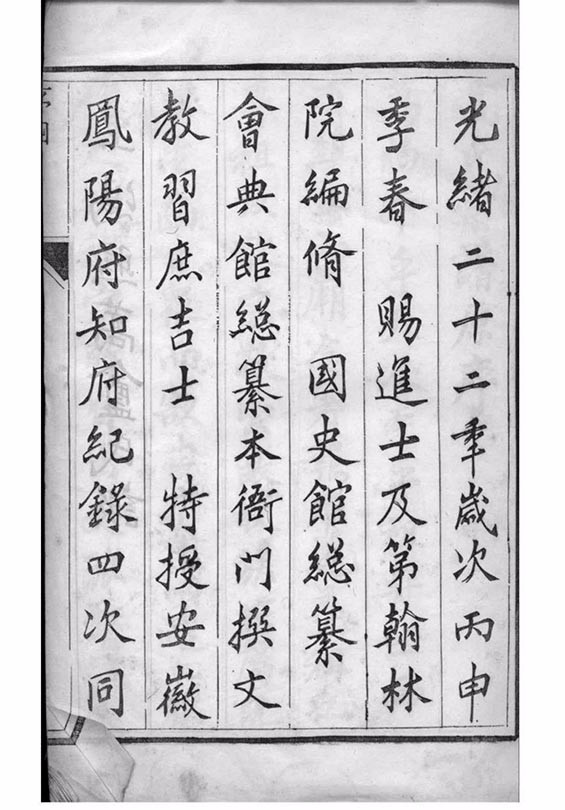 光緒二十二年歲次丙申
季春　賜進士及第翰林
院編脩　國史館總纂
會典館總纂本衙門撰文
教習庶吉士　特授安徽
鳳陽府知府紀錄四次同